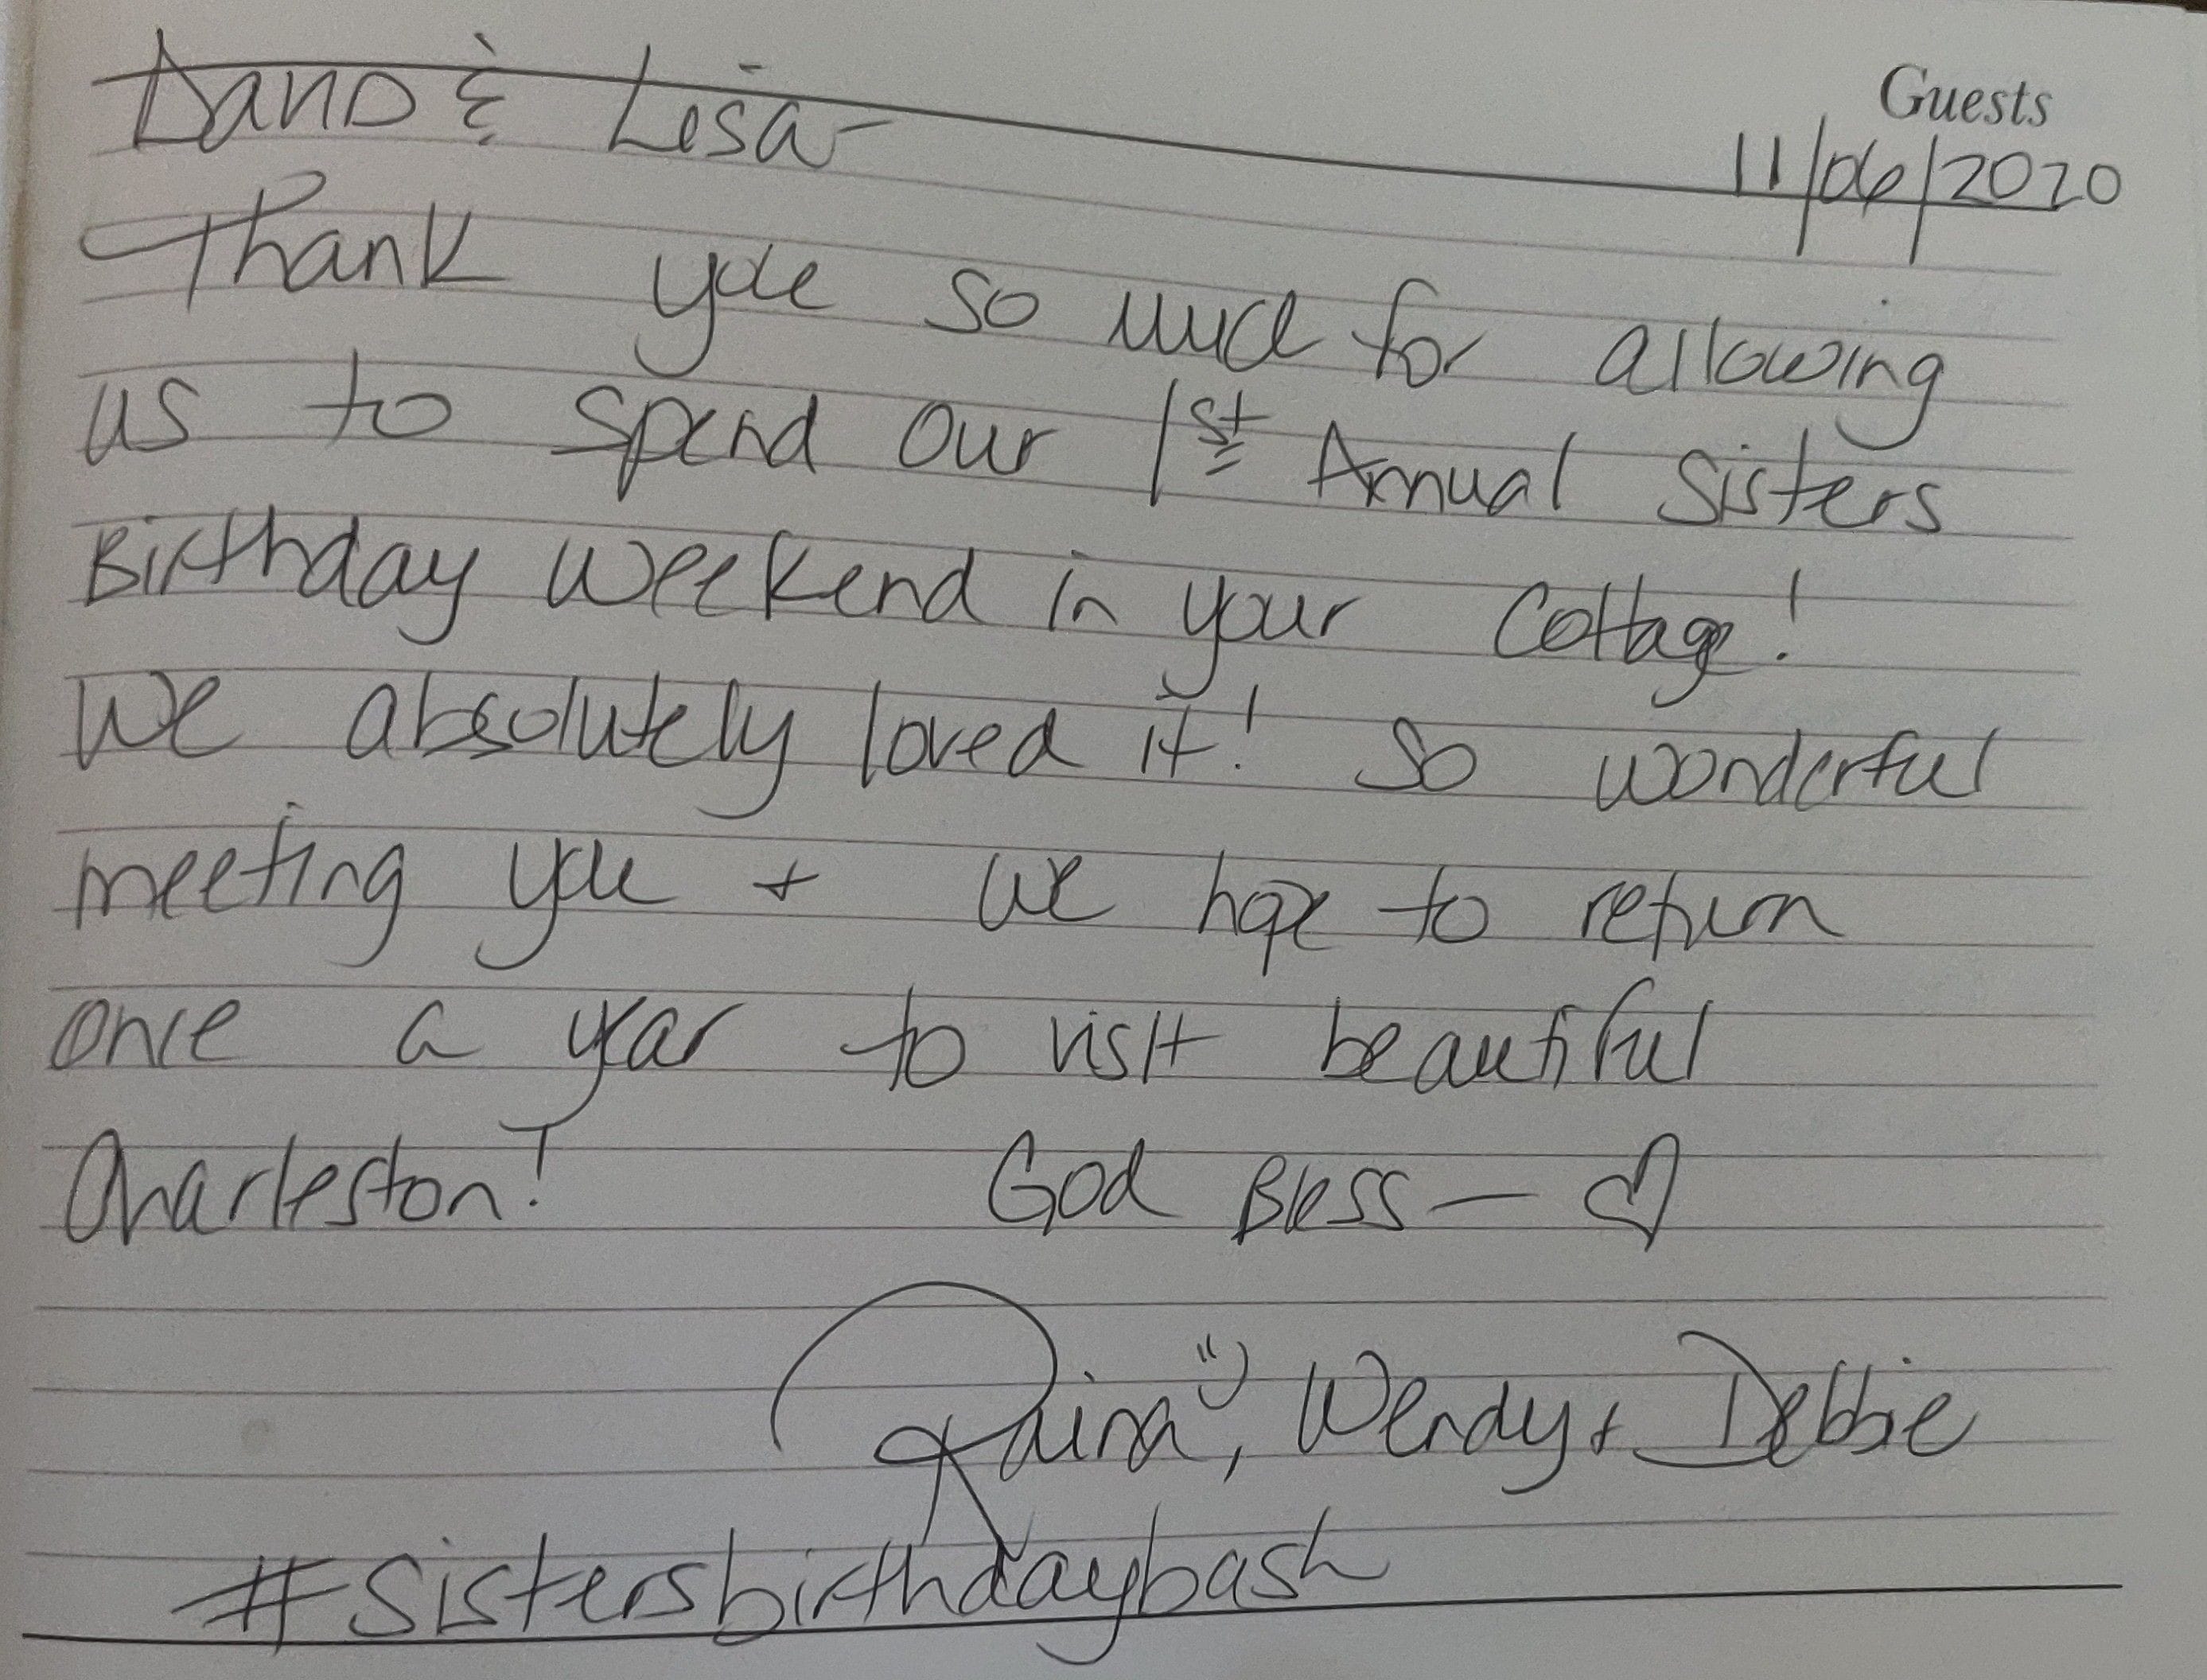 Guests
David & Lisa-
11/06/2020
Thank you so much for allowing
us to spend our 1st Annual Sisters
Birthday Weekend in your Cottage!
We absolutely loved it! So wonderful
meeting you + we hope to return
once a year to visit beautiful
Charleston! God Bless — ♡
Raina :), Wendy + Debbie
#sistersbirthdaybash